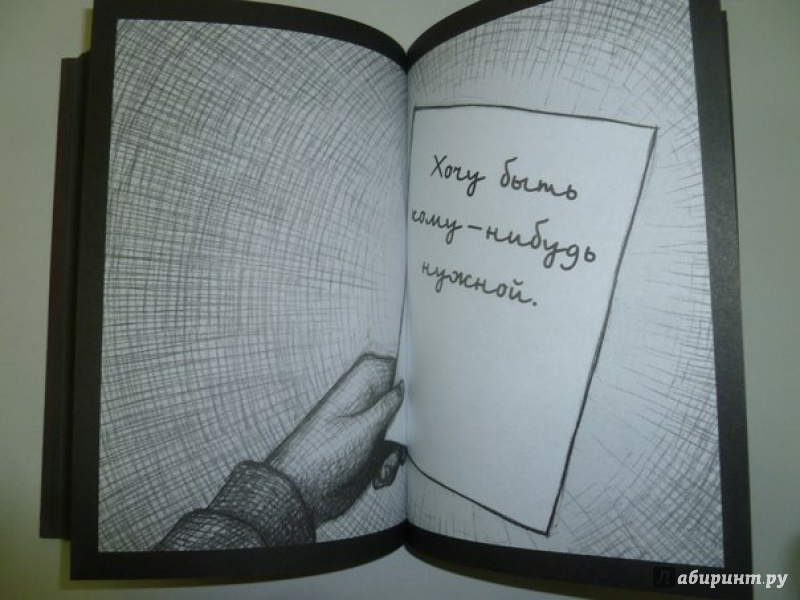 Хочу быть
кому-нибудь
нужной.
Лабиринт.ру